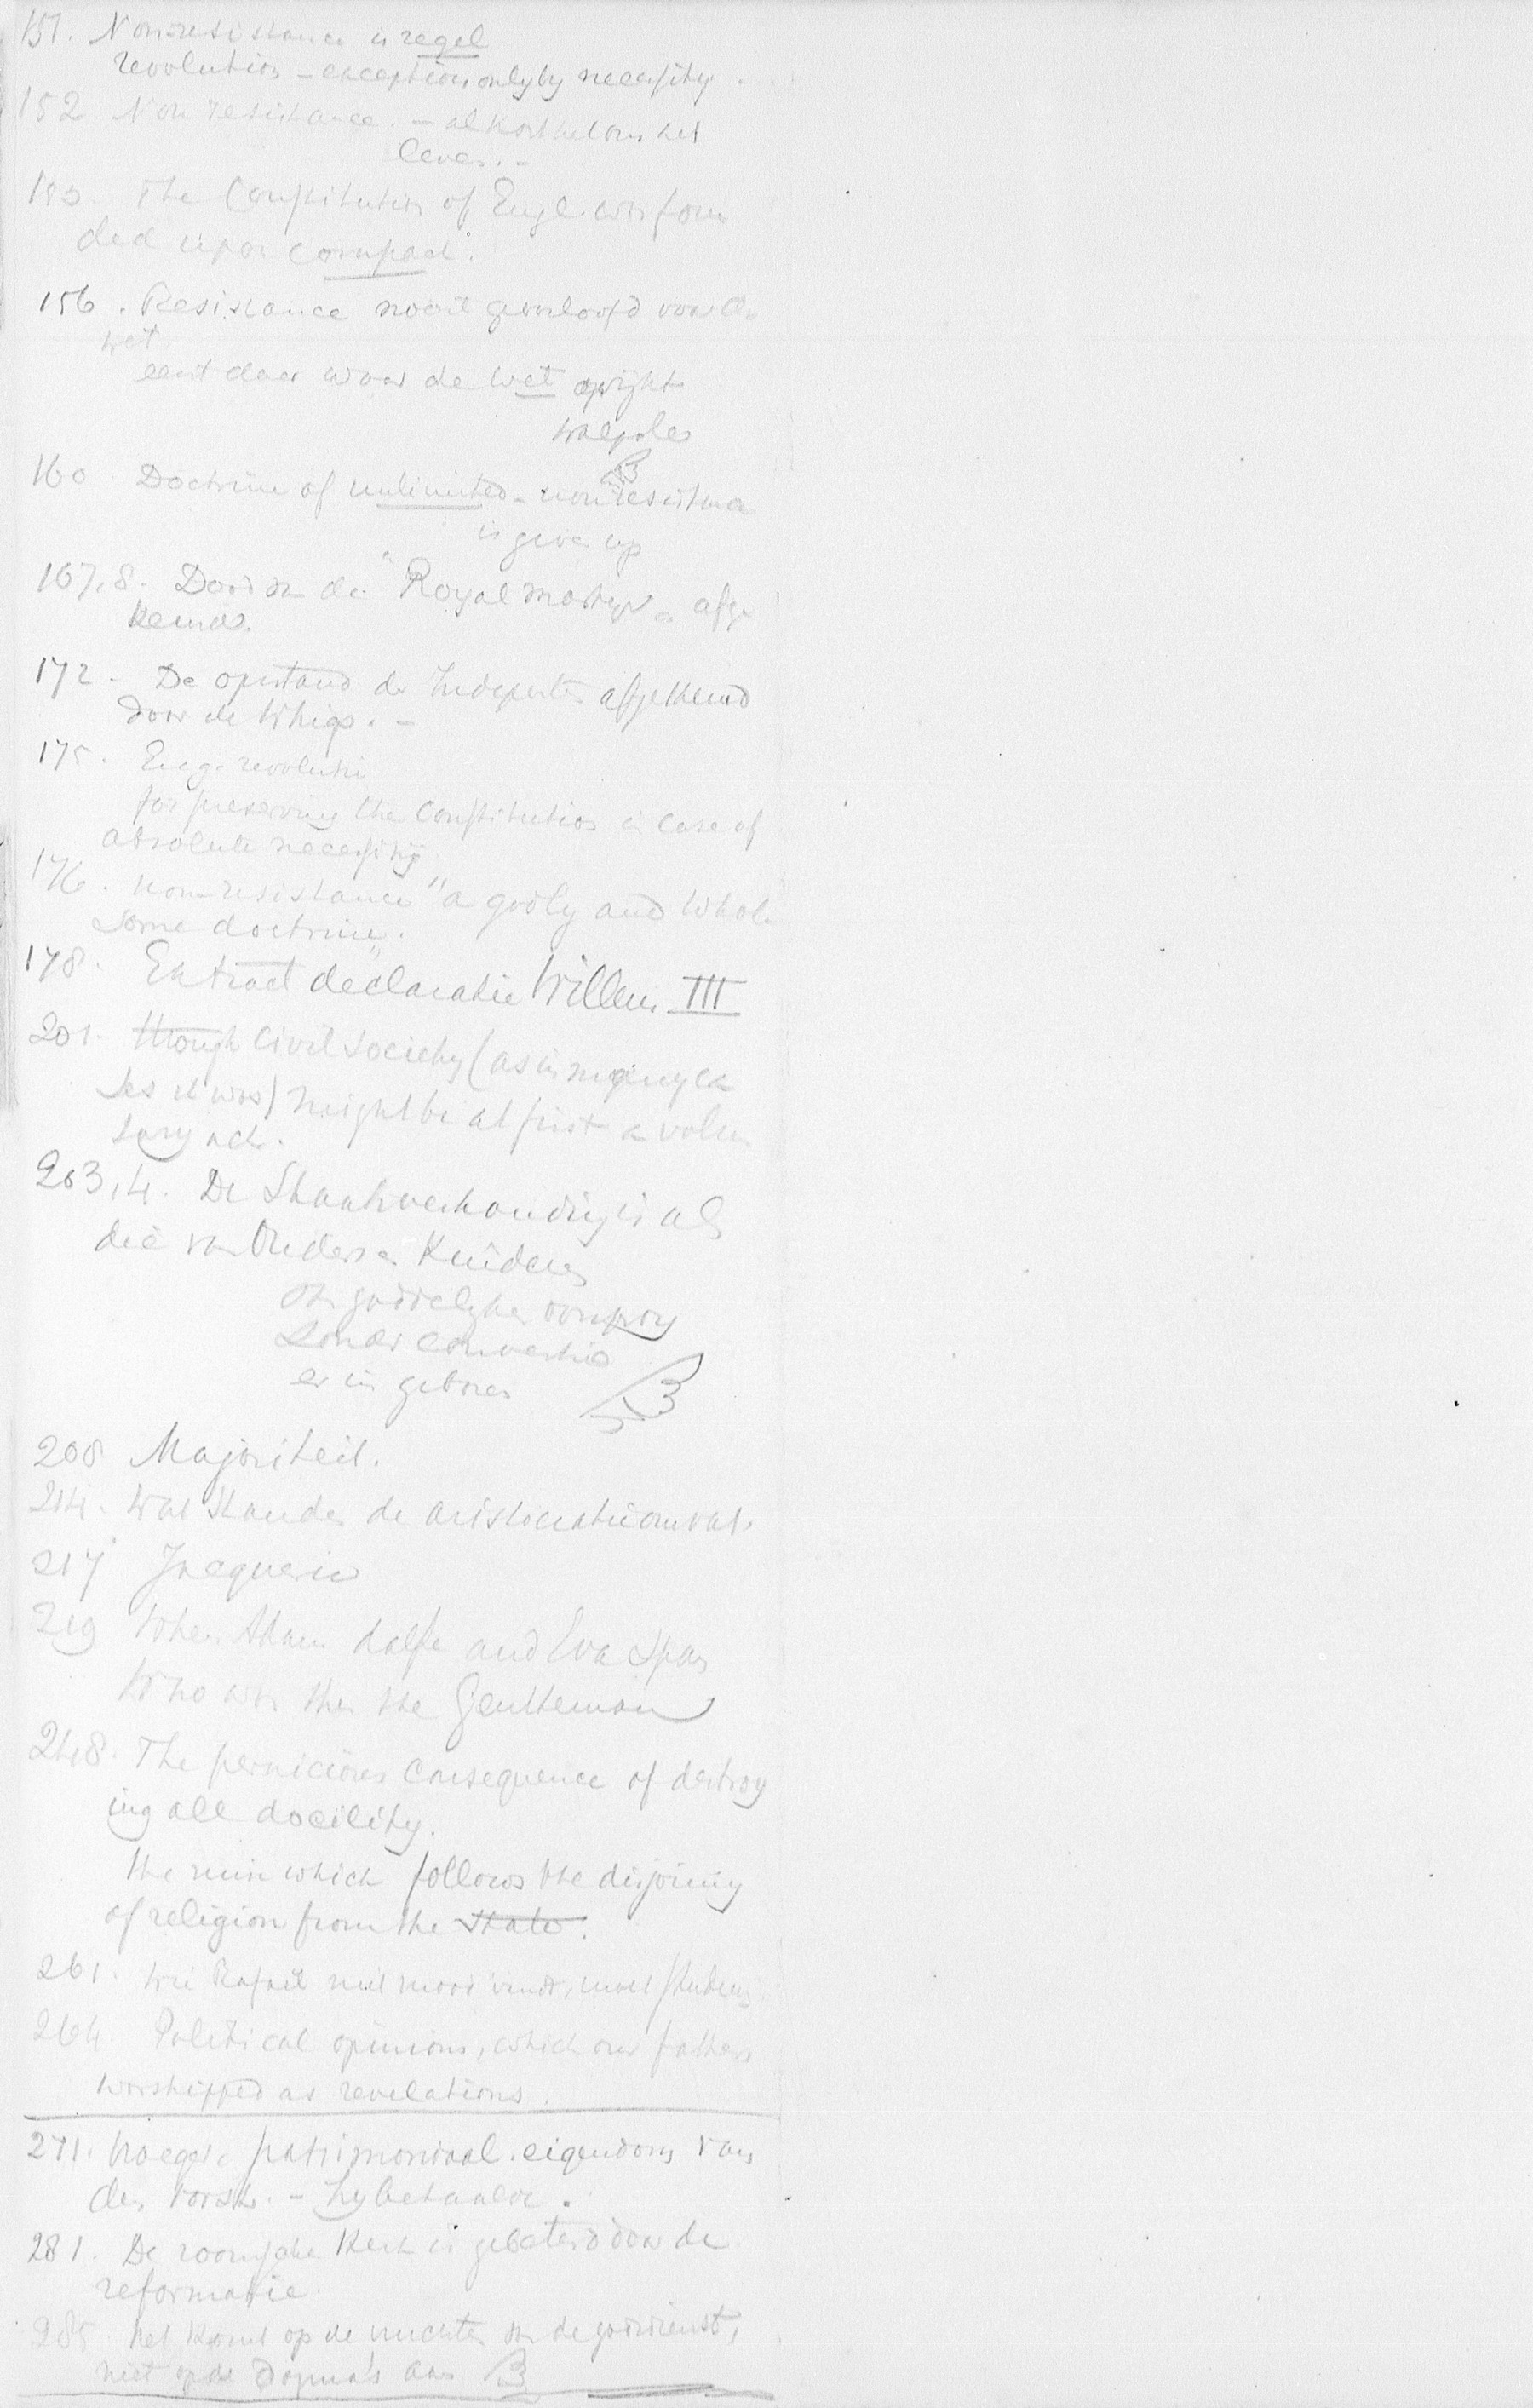 151. Non-resistance is regel
revolution - exception only by necessity
152 Non resistance. - al kost het ons het
leven. -
153 The Constitution of Engl. was foun
ded upon compact.
156. Resistance nooit geoorloofd voor de
wet
eerst daar waar de wet
Walpole
160. Doctrine of unlimited - non resistance
is given up
167,8. Dood van de "Royal martyr" afge
keurd.
172. De opstand der Independenten afgekeurd
door de Whigs. -
175. Eng. revolutie
for preserving the Constitution in case of
absolute necessity
176. non-resistance "a godly and whole
some doctrine."
178. Extract declaratie Willem III
201. though Civil Society (as in many ca
ses it was) might be at first a volun
tary act.
203,4. De Staatsverhouding is als
die van Ouders en Kinderen
van goddelijken oorsprong
zonder conventie
er in geboren
208 Majoriteit.
214. Wat standen de aristocratie omvat.
217 Jacquerie
219 When Adam dalfe and Eva span
Who was then the Gentleman
248. The pernicious consequence of destroy
ing all docility.
the ruin which follows the disjoining
of religion from the state.
261. Wie Rafael niet mooi vindt, moet studeeren
264. Political opinions, which our fathers
worshipped as revelations.
271. Vroeger patrimoniaal. eigendom van
den vorst. - hij betaalde.
281. De roomsche Kerk is gebeterd door de
reformatie.
285 het komt op de vruchten van de godsdienst,
niet op de dogma's aan